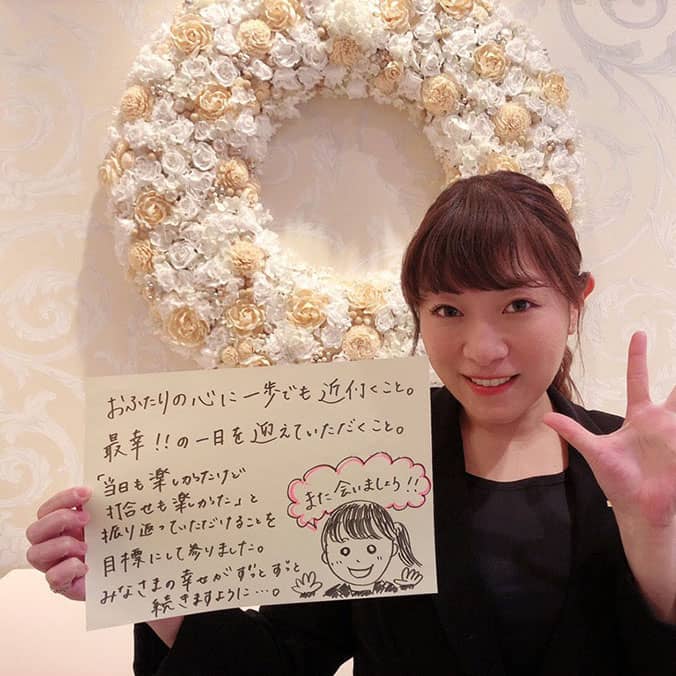 おふたりの心に一歩でも近付くこと。
最幸!!の一日を迎えていただくこと。
「当日も楽しかったけど
打合せも楽しかった」と
振り返っていただけることを
目標にして参りました。
みなさまの幸せがずっとずっと
続きますように…。
また会いましょう!!